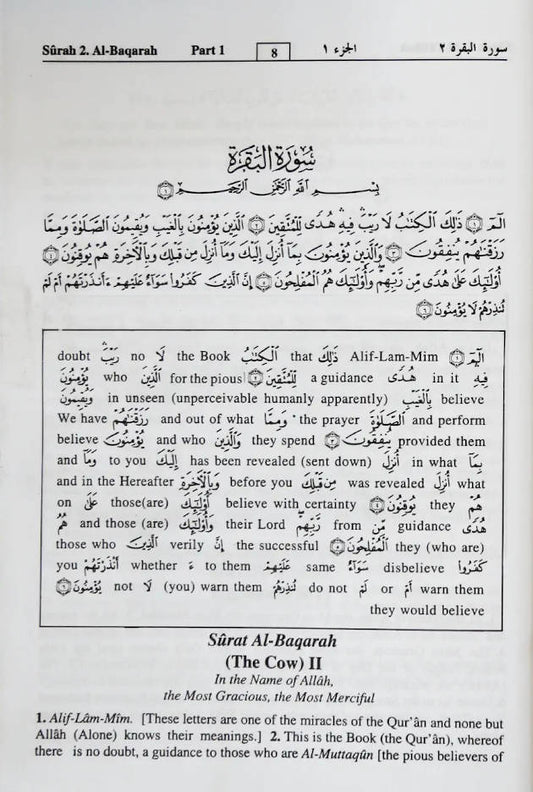 Sûrah 2. Al-Baqarah Part 1 8 الجزء ١ سورة البقرة ٢
سُورَةُ البَقَرَةِ
بِسْمِ اللَّهِ الرَّحْمَٰنِ الرَّحِيمِ ١
الٓمٓ ١ ذَٰلِكَ الْكِتَٰبُ لَا رَيْبَ ۛ فِيهِ ۛ هُدًى لِّلْمُتَّقِينَ ٢ الَّذِينَ يُؤْمِنُونَ بِالْغَيْبِ وَيُقِيمُونَ الصَّلَوٰةَ وَمِمَّا
رَزَقْنَٰهُمْ يُنفِقُونَ ٣ وَالَّذِينَ يُؤْمِنُونَ بِمَا أُنزِلَ إِلَيْكَ وَمَا أُنزِلَ مِن قَبْلِكَ وَبِالْآخِرَةِ هُمْ يُوقِنُونَ ٤
أُولَٰئِكَ عَلَىٰ هُدًى مِّن رَّبِّهِمْ وَأُولَٰئِكَ هُمُ الْمُفْلِحُونَ ٥ إِنَّ الَّذِينَ كَفَرُوا سَوَاءٌ عَلَيْهِمْ ءَأَنذَرْتَهُمْ أَمْ لَمْ
تُنذِرْهُمْ لَا يُؤْمِنُونَ ٦
الٓمٓ ١ Alif-Lam-Mim ذَٰلِكَ that الْكِتَٰبُ the Book لَا no رَيْبَ ۛ doubt
فِيهِ in it هُدًى a guidance لِّلْمُتَّقِينَ ٢ for the pious الَّذِينَ who يُؤْمِنُونَ
believe بِالْغَيْبِ in unseen (unperceivable humanly apparently) وَيُقِيمُونَ
and perform الصَّلَوٰةَ the prayer وَمِمَّا and out of what رَزَقْنَٰهُمْ We have
provided them يُنفِقُونَ ٣ they spend وَالَّذِينَ and who يُؤْمِنُونَ believe
بِمَا in what أُنزِلَ has been revealed (sent down) إِلَيْكَ to you وَمَا and
what أُنزِلَ was revealed مِن قَبْلِكَ before you وَبِالْآخِرَةِ and in the Hereafter
هُمْ they يُوقِنُونَ ٤ believe with certainty أُولَٰئِكَ those(are) عَلَىٰ on
هُدًى guidance مِّن from رَّبِّهِمْ their Lord وَأُولَٰئِكَ and those (are) هُمُ
they (who are) الْمُفْلِحُونَ ٥ the successful إِنَّ verily الَّذِينَ those who
كَفَرُوا disbelieve سَوَاءٌ same عَلَيْهِمْ to them ءَ whether أَنذَرْتَهُمْ you
warn them أَمْ or لَمْ do not تُنذِرْهُمْ (you) warn them لَا not يُؤْمِنُونَ ٦
they would believe
Sûrat Al-Baqarah
(The Cow) II
In the Name of Allâh,
the Most Gracious, the Most Merciful
1. Alif-Lâm-Mîm. [These letters are one of the miracles of the Qur'ân and none but
Allâh (Alone) knows their meanings.] 2. This is the Book (the Qur'ân), whereof
there is no doubt, a guidance to those who are Al-Muttaqûn [the pious believers of